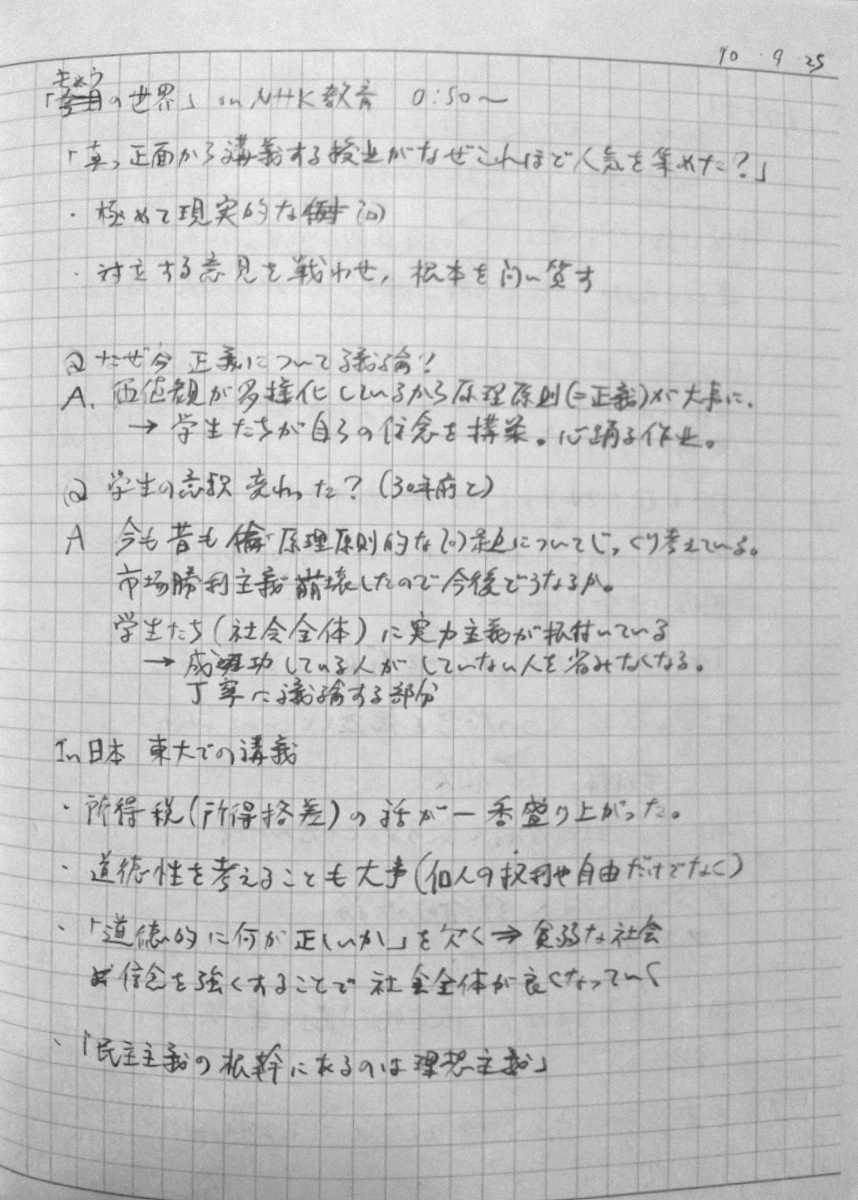 '10・9・25
きょう
「の世界」 on NHK教育 0:50〜
「真っ正面から講義する授業がなぜこれほど人気を集めた?」
・極めて現実的な問
・対立する意見を戦わせ,根本を問い質す
Q なぜ今 正義について議論?
A. 価値観が多様化しているから原理原則(=正義)が大事に.
→ 学生たちが自らの信念を構築。心踊る作業。
Q 学生の意識変わった?(30年前と)
A 今も昔も原理原則的な問題についてじっくり考えている。
市場勝利主義崩壊したので今後どうなるか。
学生たち(社会全体)に実力主義が根付いている
→ 成功している人がしていない人を省みなくなる。
丁寧に議論する部分
In 日本 東大での講義
・所得税(所得格差)の話が一番盛り上がった。
・道徳性を考えることも大事(個人の権利や自由だけでなく)
・「道徳的に何が正しいか」を欠く⇒貧弱な社会
信念を強くすることで社会全体が良くなっていく
・「民主主義の根幹にあるのは理想主義」